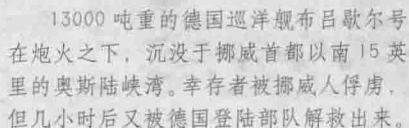 13000 吨重的德国巡洋舰布吕歇尔号
在炮火之下，沉没于挪威首都以南 15 英
里的奥斯陆峡湾。幸存者被挪威人俘虏，
但几小时后又被德国登陆部队解救出来。